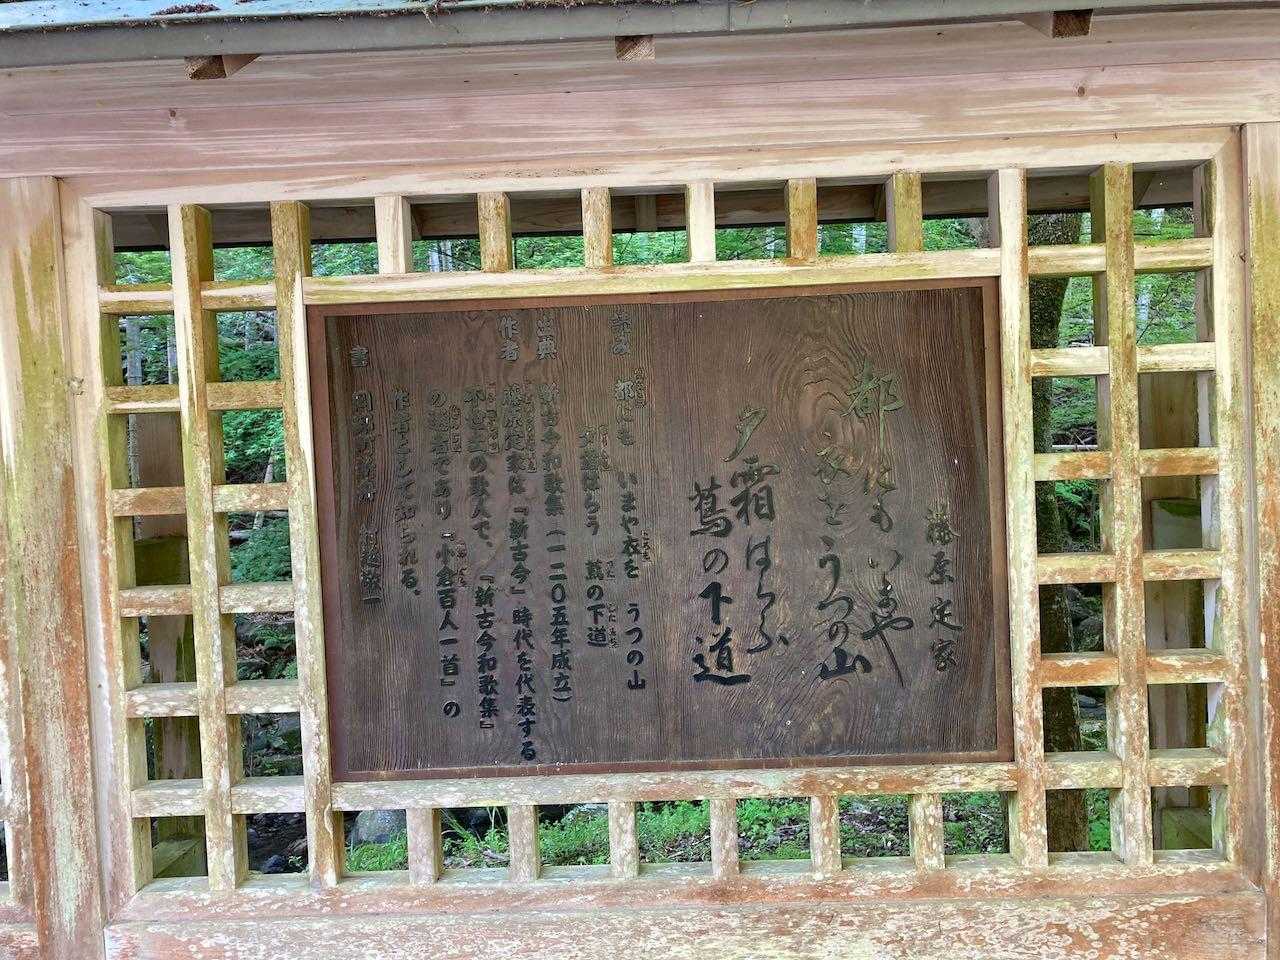 藤原定家
都にも いまや
衣をうつの山
夕霜はらふ
蔦の下道
読み 都にも いまや衣を うつの山
夕霜はらう 蔦の下道
出典 新古今和歌集(一二〇五年成立)
作者 藤原定家は『新古今』時代を代表する
不世出の歌人で、『新古今和歌集』
の選者であり『小倉百人一首』の
作者として知られる。
書